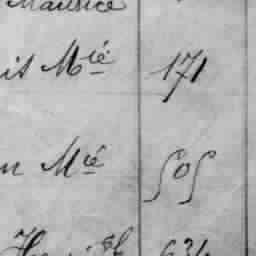 Maurice
it M^ié 171
n M^ié 505
634